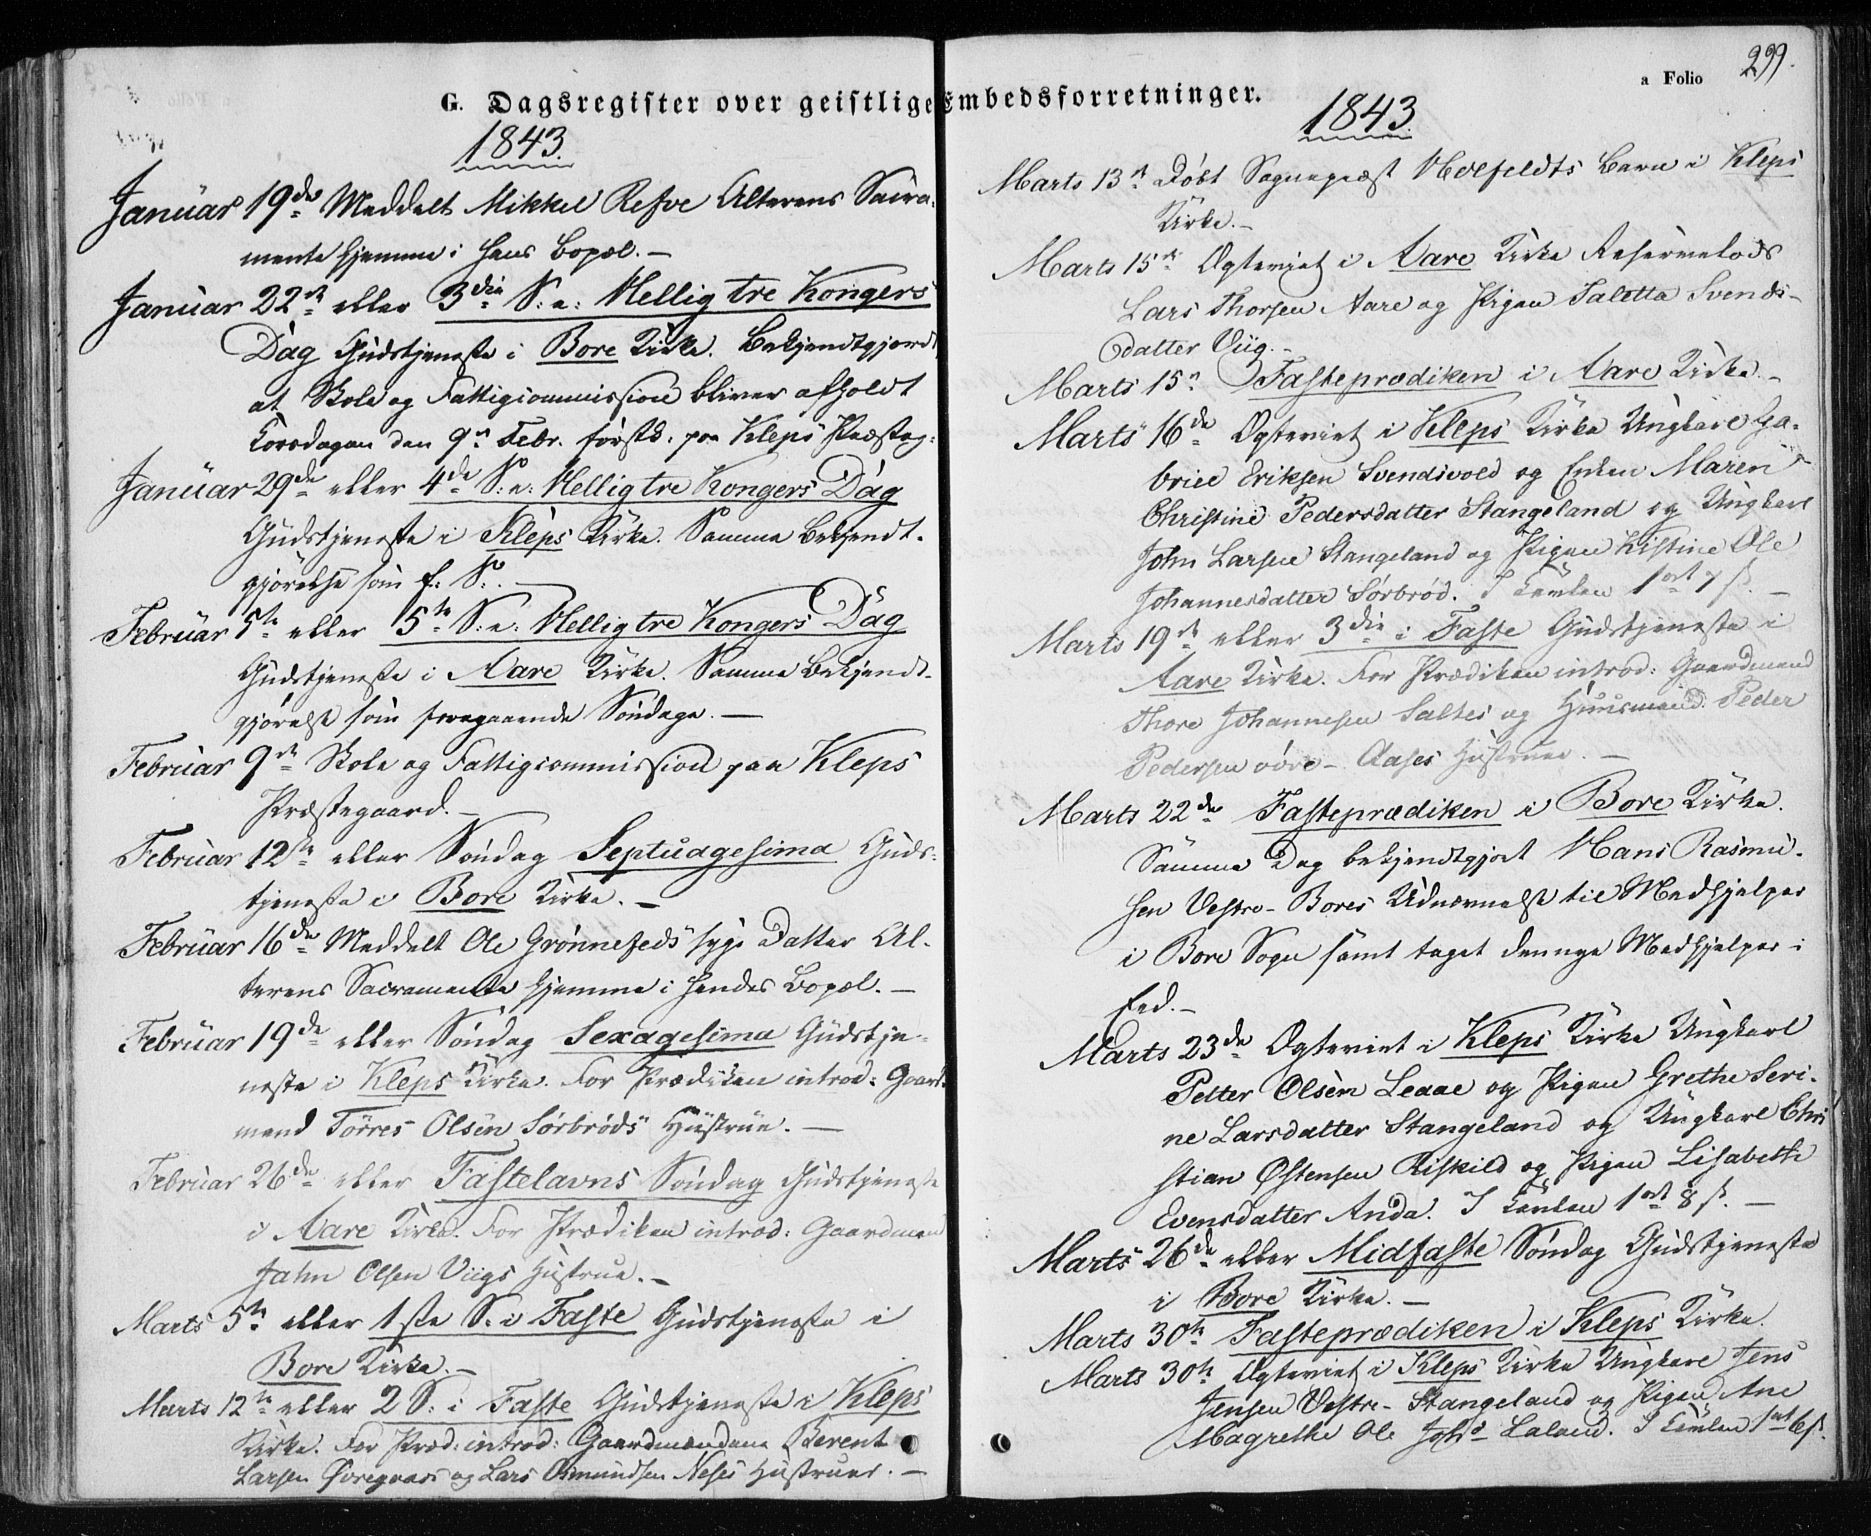 a Folio 299.
G. Dagsregister over geistlige Embedsforretninger.
1843.
Januar 19de Meddelt Mikkel Refve Alterens Sacra-
mente hjemme i hans Bopæl. —
Januar 22de eller 3die S: e: Hellig tre Kongers
Dag Gudstjeneste i Bore Kirke. Bekjendtgjordt
at Skole og Fattigcommission bliver afholdt
Torsdagen den 9de Febr. førstk. paa Kleps Præsteg:
Januar 29de eller 4de S: e: Hellig tre Kongers Dag
Gudstjeneste i Kleps Kirke. Samme Bekjendt-
gjørelse som f: S:. —
Februar 5te eller 5te S: e: Hellig tre Kongers Dag
Gudstjeneste i Aare Kirke. Samme Bekjendt-
gjørelse som foregaaende Søndage. —
Februar 9de Skole og Fattigcommission paa Kleps
Præstegaard. —
Februar 12te eller Søndag Septuagesima Guds-
tjeneste i Bore Kirke. —
Februar 16de Meddelt Ole Grønnefeds syge Datter Al-
terens Sacramente hjemme i hendes Bopæl. —
Februar 19de eller Søndag Sexagesima Gudstje-
neste i Kleps Kirke. For Prædiken introd: Gaard-
mand Tørres Olsen Sørbrøds Hustrue. —
Februar 26de eller Fastelavns Søndag Gudstjeneste
i Aare Kirke. For Prædiken introd: Gaardmand
Jahn Olsen Viigs Hustrue. —
Marts 5te eller 1ste S. i Faste Gudstjeneste i
Bore Kirke. —
Marts 12te eller 2 S: i Faste Gudstjeneste i Kleps
Kirke. For Præd: introd: Gaardmændene Berent
Larsen Øvregaars og Lars Osmundsen Neses Hustruer. —
1843.
Marts 13de Døbt Sognepræst Barn i Kleps
Kirke. —
Marts 15de Ægteviet i Aare Kirke
Lars Thorsen Aare og Pigen Saletta Svends-
datter Viig. —
Marts 15de Fasteprædiken i Aare Kirke. —
Marts 16de Ægteviet i Kleps Kirke Ungkarl Ga-
briel Eriksen Svendsvold og Enken Maren
Christine Pedersdatter Stangeland og Ungkarl
John Larsen Stangeland og Pigen Kistine Ole
Johannesdatter Sørbrød. I Tavlen 1 ort 7 s. —
Marts 19de eller 3die i Faste Gudstjeneste i
Aare Kirke. For Prædiken introd: Gaardmand
Thore Johannesen Saltes og Huusmand Peder
Pedersen øvre-Aases Hustruer. —
Marts 22de Fasteprædiken i Bore Kirke.
Samme Dag bekjendtgjort Hans Rasmu-
sen Vestre-Bores Udnævnelse til Medhjelper
i Bore Sogn samt taget den nye Medhjelper i
Eed. —
Marts 23de Ægteviet i Kleps Kirke Ungkarl
Petter Olsen Leaae og Pigen Grethe Seri-
ne Larsdatter Stangeland og Ungkarl Chri
stian Østensen Riskild og Pigen Lisabeth
Evensdatter Anda. I Tavlen 1 ort 8 s. —
Marts 26de eller Midfaste Søndag Gudstjeneste
i Bore Kirke. —
Marts 30te Fasteprædiken i Kleps Kirke.
Marts 30te Ægteviet i Kleps Kirke Ungkarl Jens
Jensen Vestre-Stangeland og Pigen Ane
Magrethe Ole Laland. I Tavlen 1 ort 6 s.